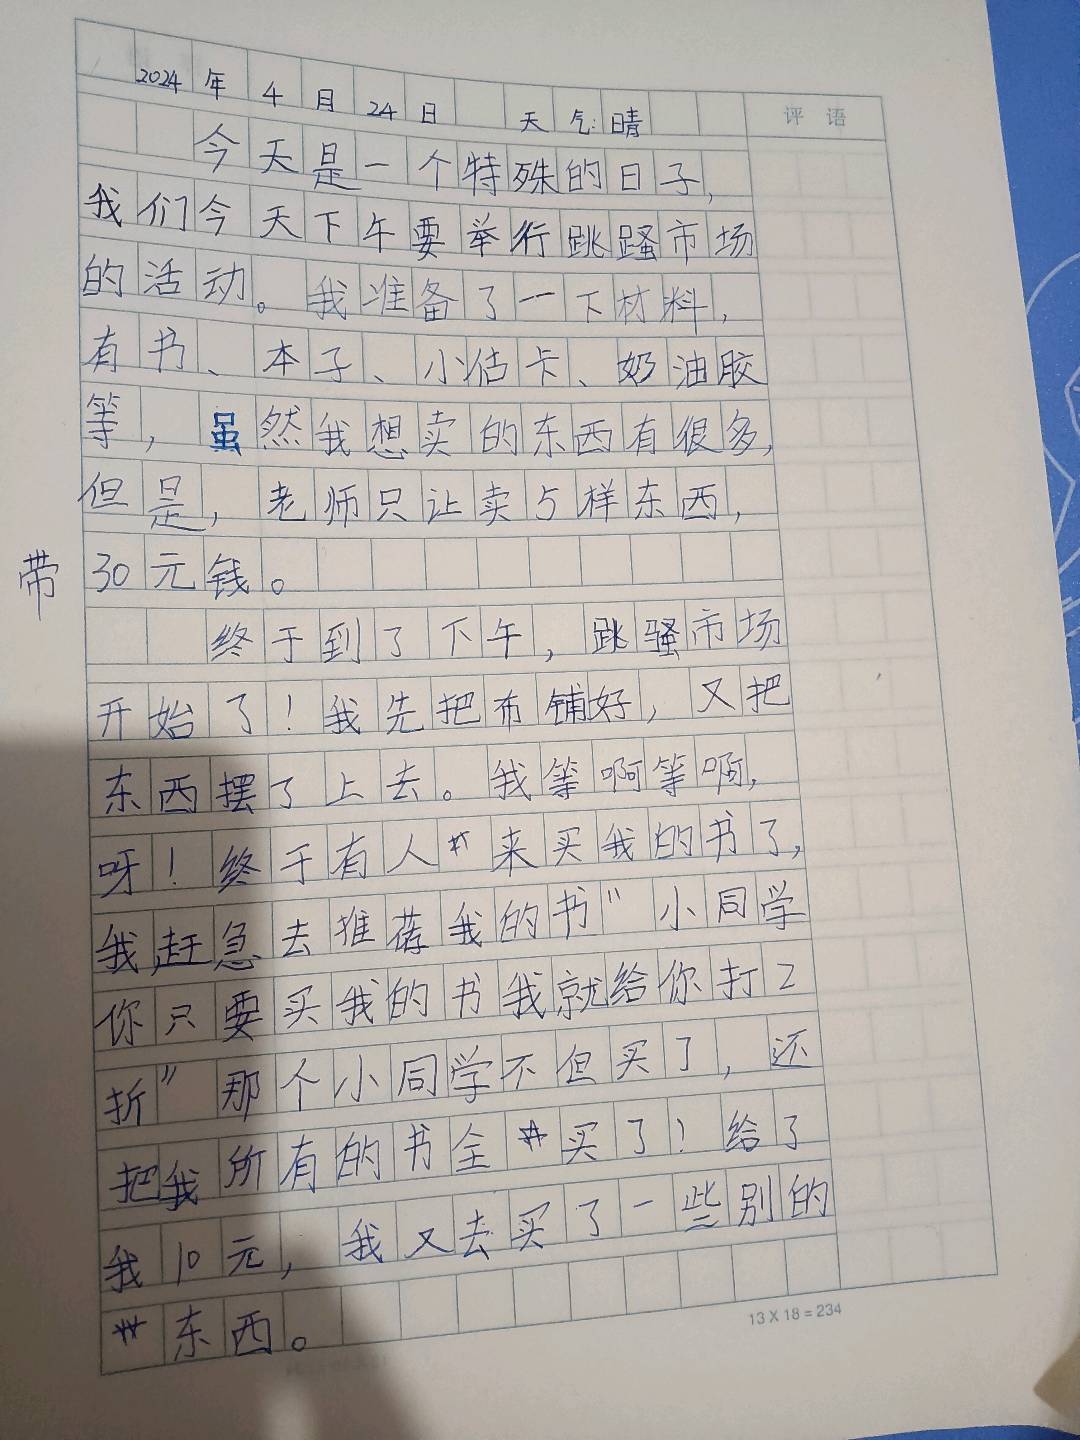 2024年4月24日 天气:晴
评语
今天是一个特殊的日子,
我们今天下午要举行跳蹓市场
的活动。我准备了一下材料,
有书、本子、小估卡、奶油胶
等,虽然我想卖的东西有很多,
但是,老师只让卖5样东西,
带30元钱。
终于到了下午,跳骚市场
开始了!我先把布铺好,又把
东西摆了上去。我等啊等啊,
呀!终于有人来买我的书了,
我赶急去推荐我的书"小同学
你只要买我的书我就给你打2
折"那个小同学不但买了,还
把我所有的书全买了!给了
我10元,我又去买了一些别的
东西。
13X18=234